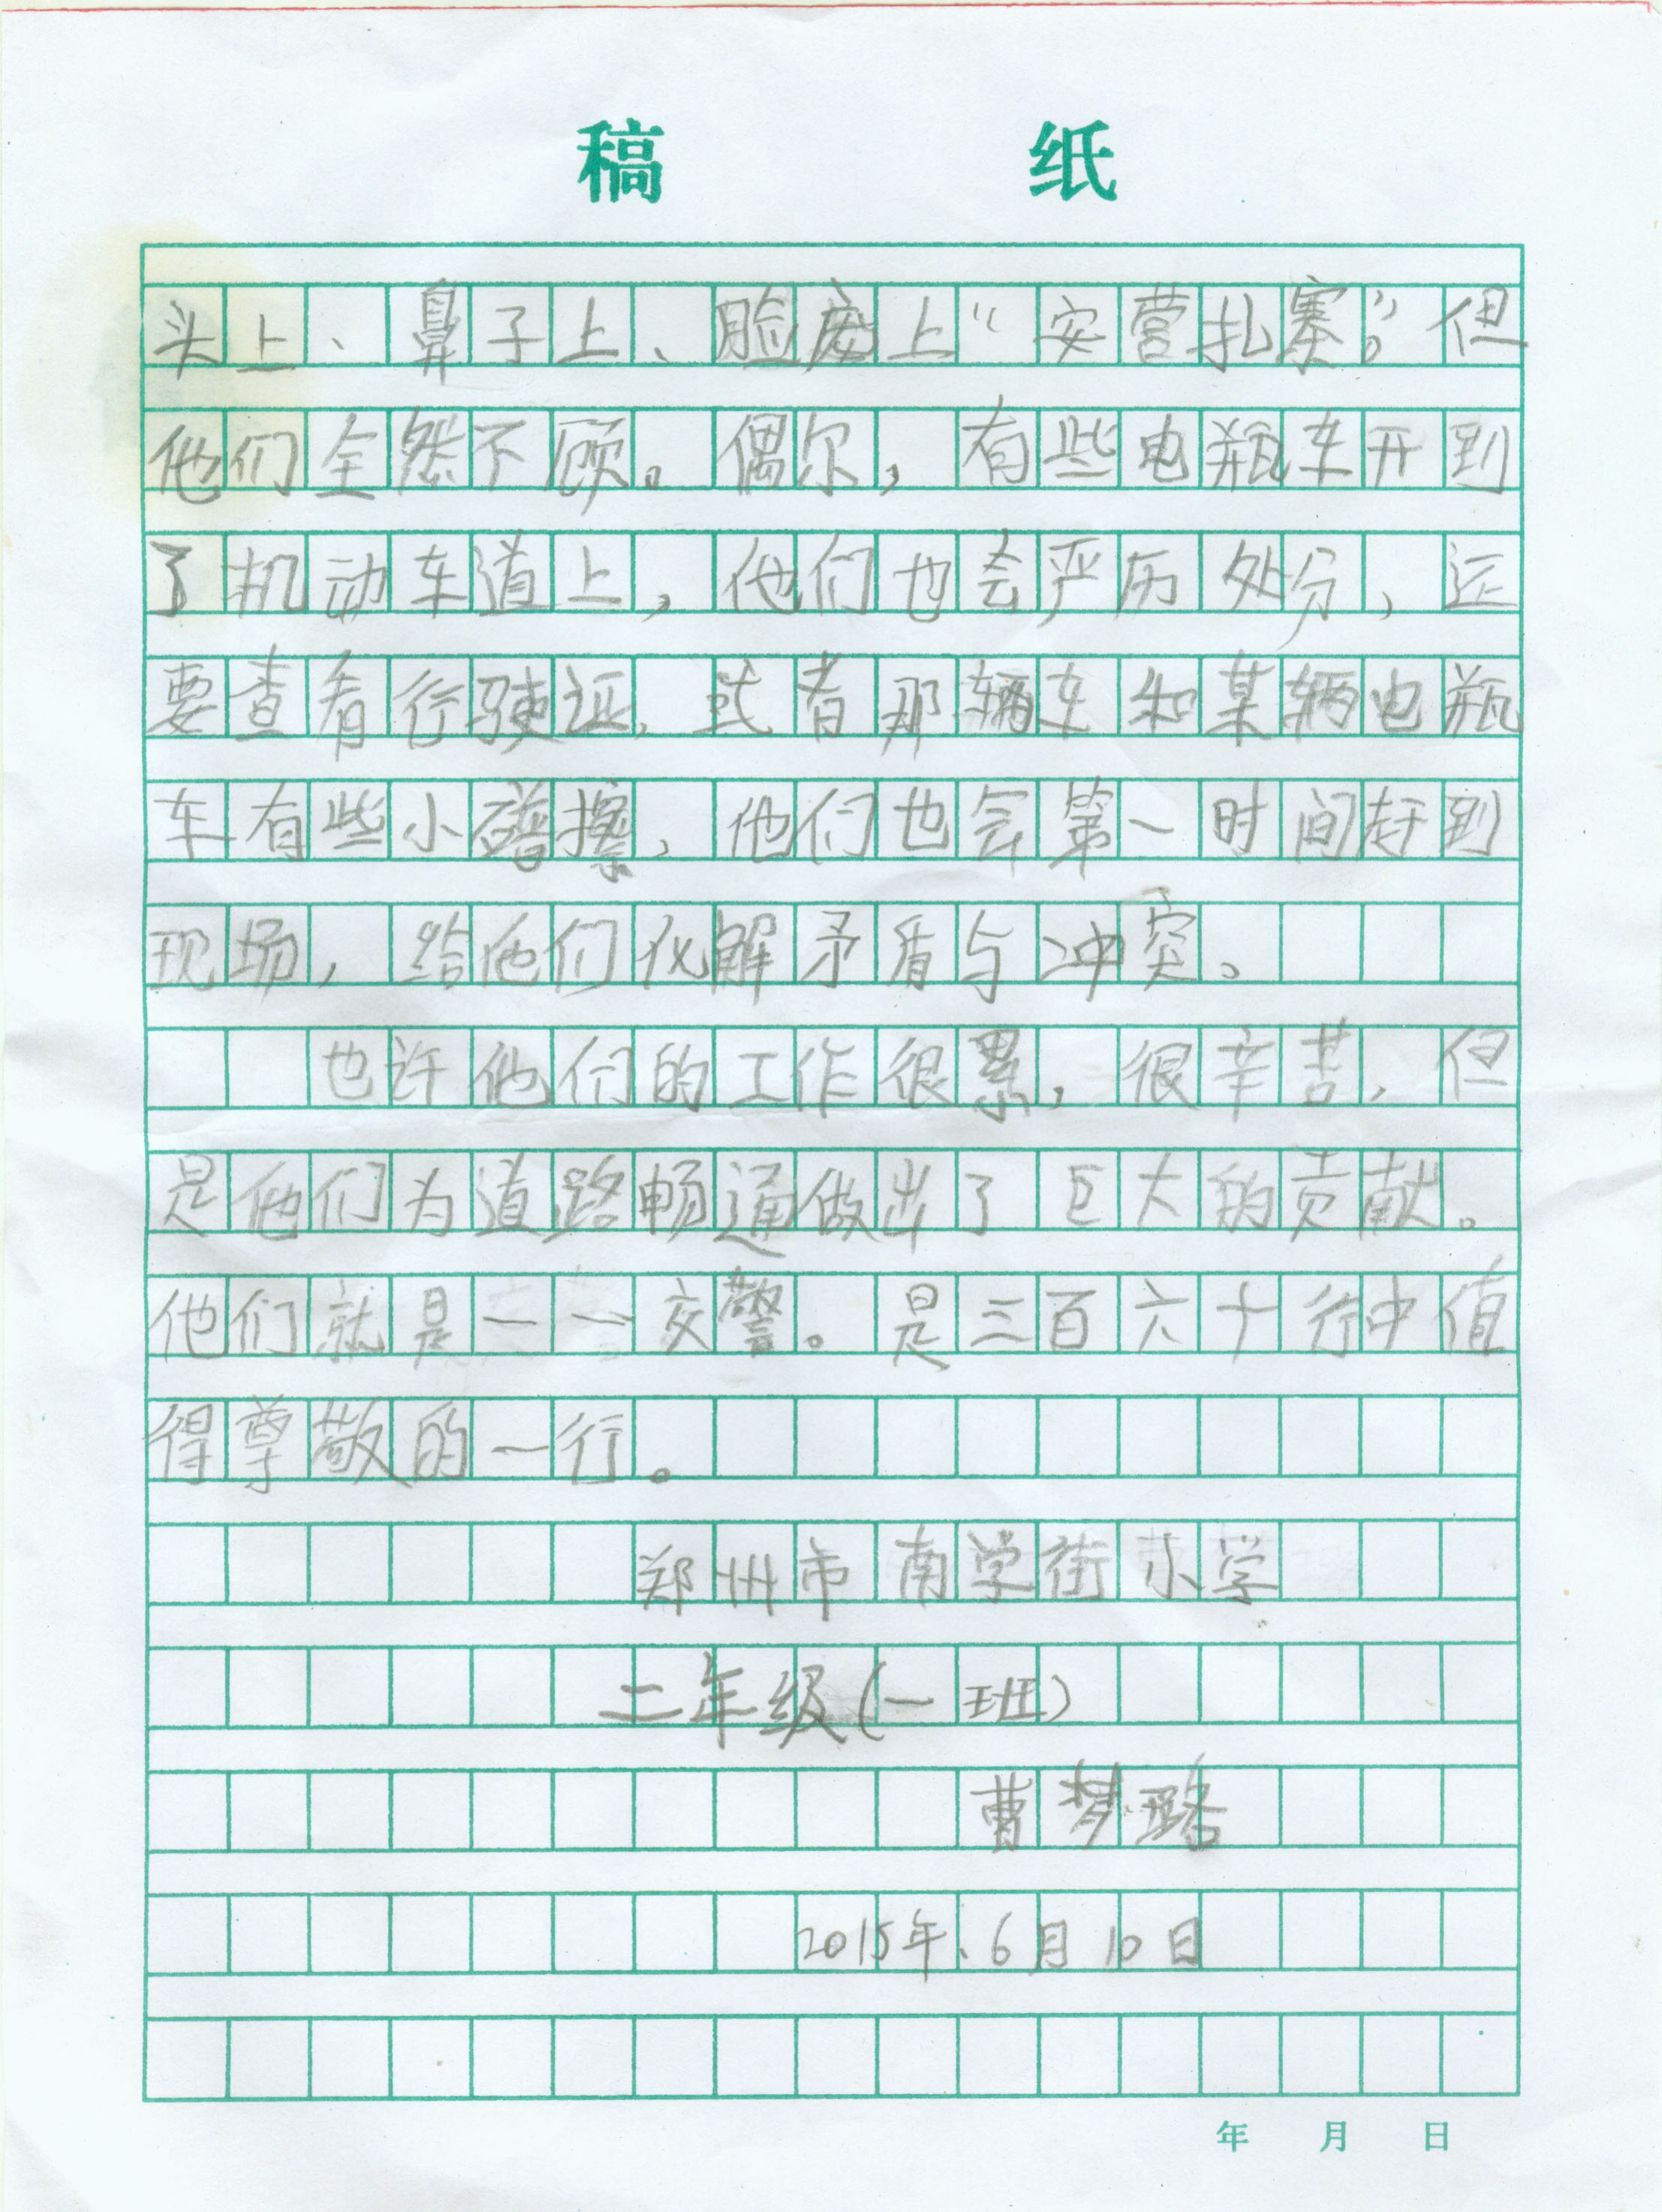 稿 纸
头上、鼻子上、脸庞上“安营扎寨”，但
他们全然不顾。偶尔，有些电瓶车开到
了机动车道上，他们也会严历处分，还
要查看行驶证，或者那辆车和某辆电瓶
车有些小擦，他们也会第一时间赶到
现场，给他们化解矛盾与冲突。
也许他们的工作很累，很辛苦，但
是他们为道路畅通做出了巨大的贡献。
他们就是一一交警。是三百六十行中值
得尊敬的一行。
郑州市南学街小学
二年级(一班)
曹梦璐
2015年、6月10日
年 月 日